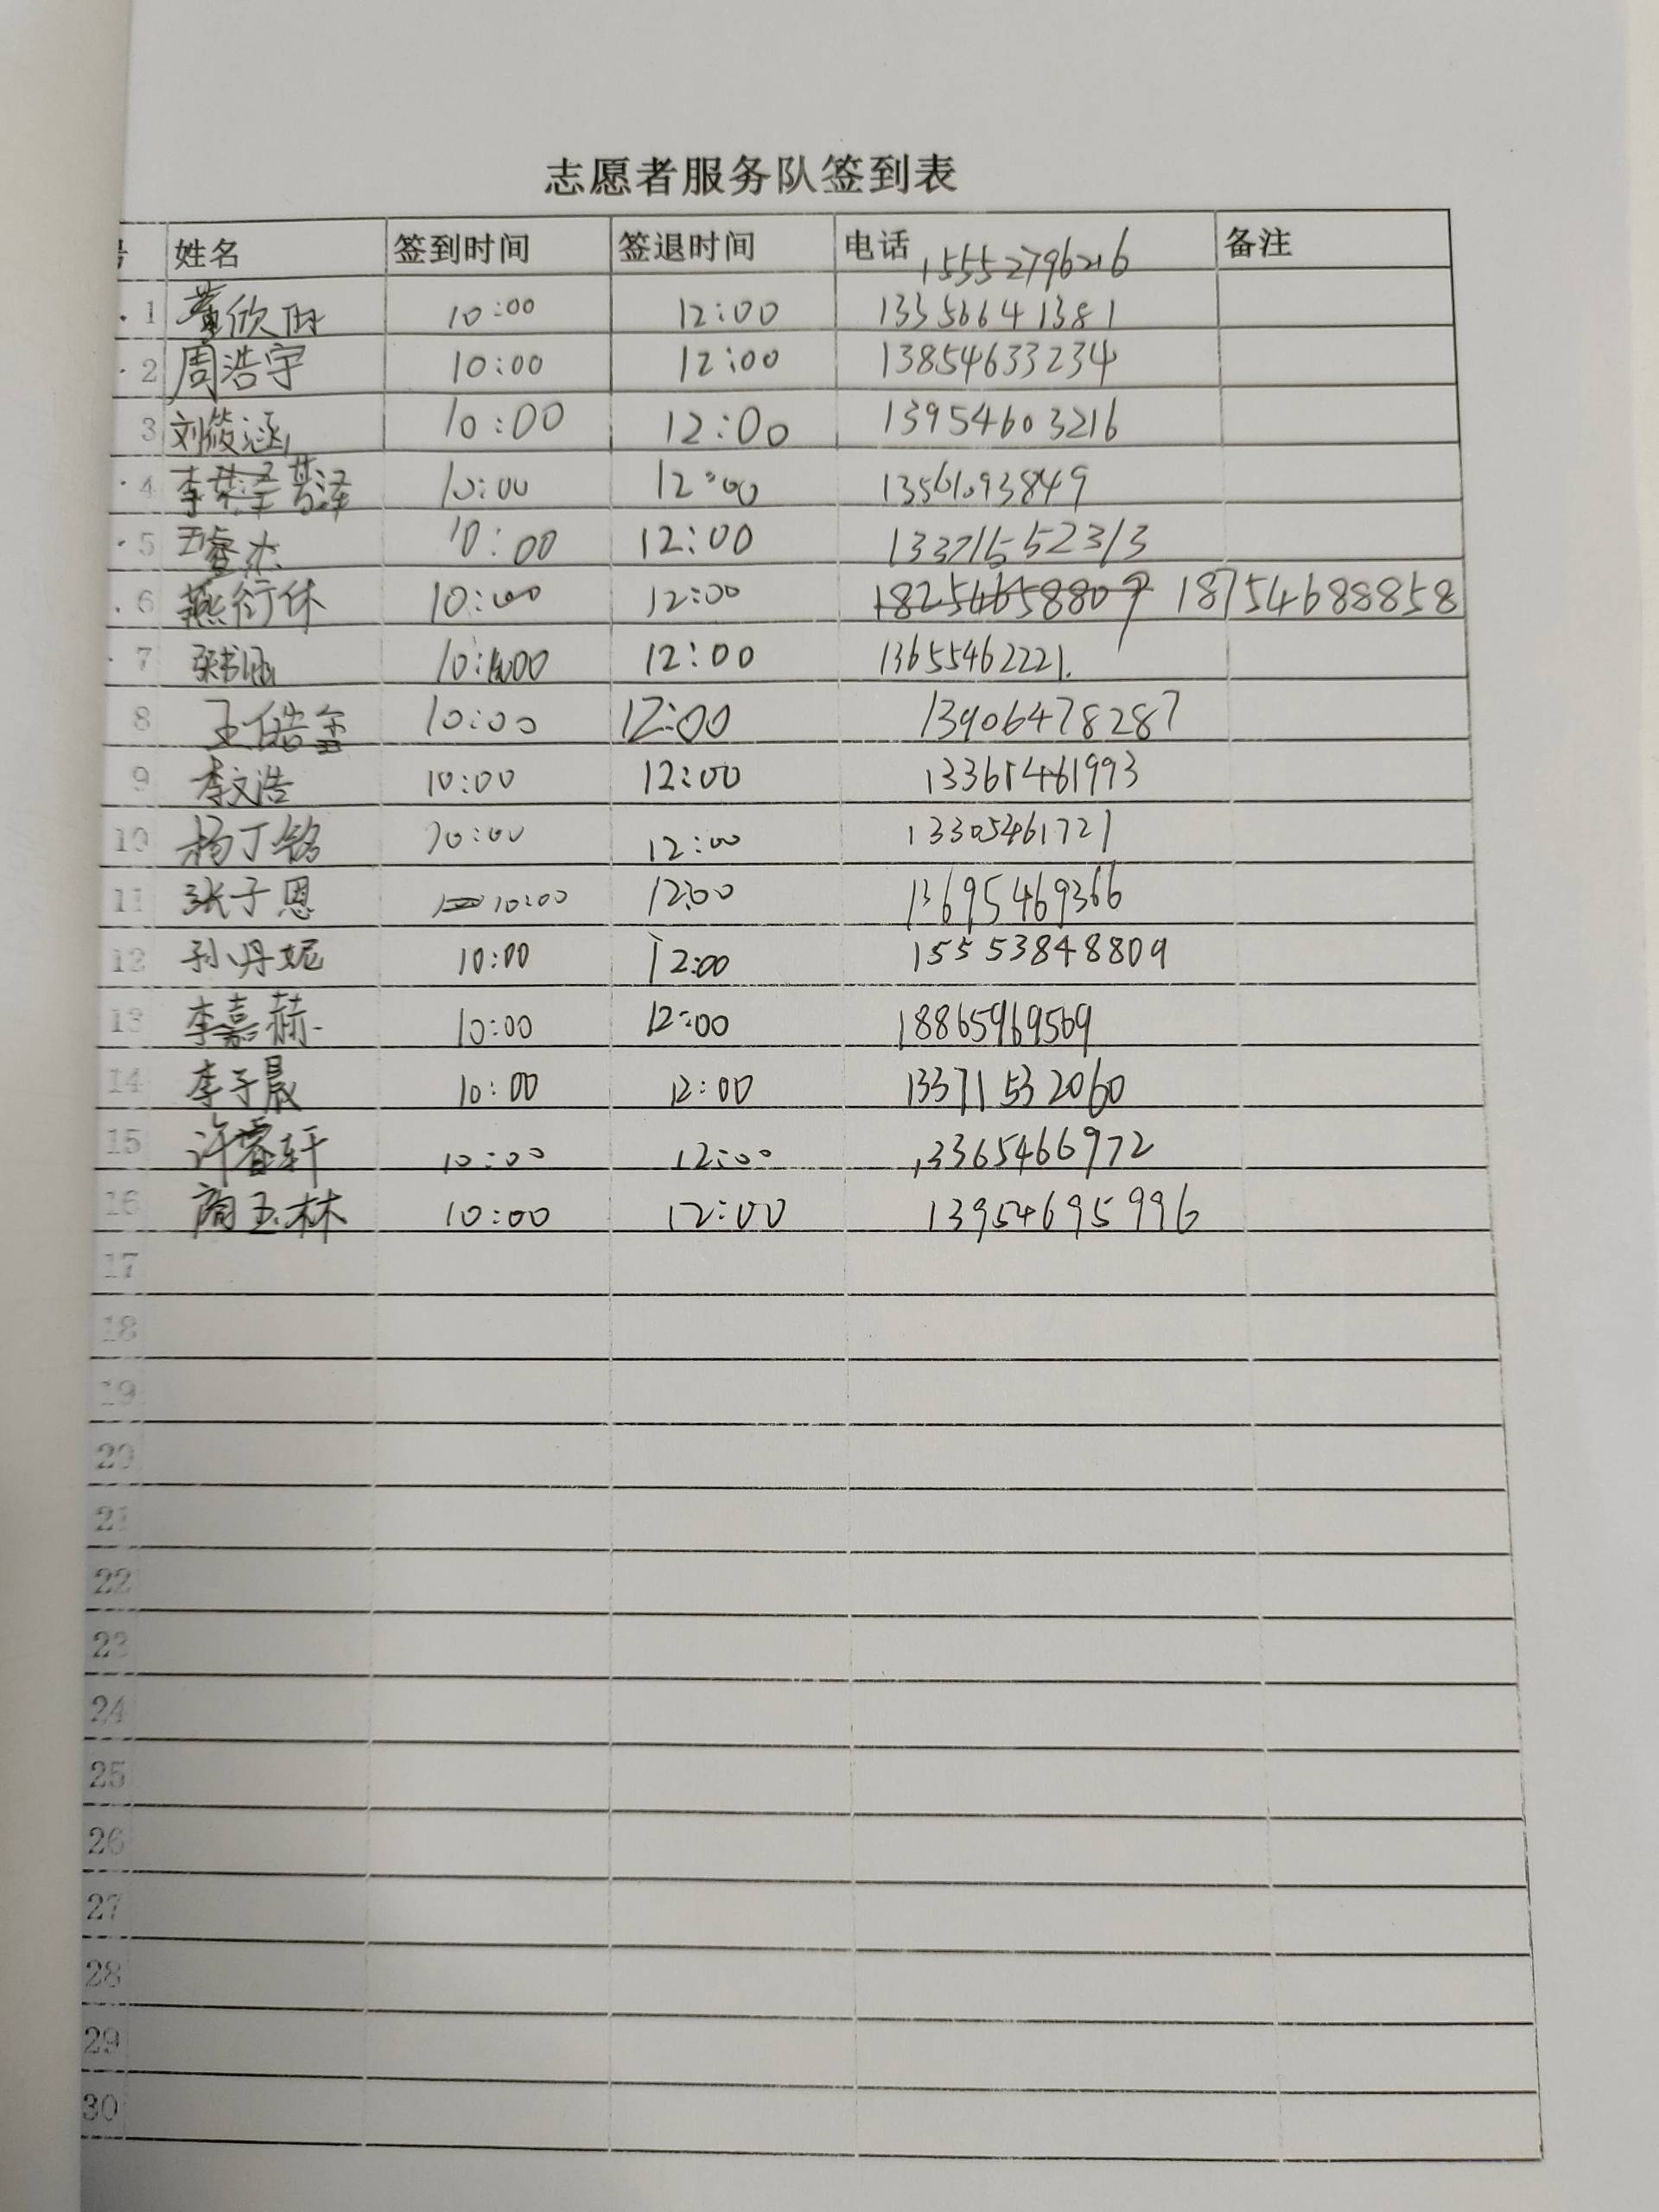 志愿者服务队签到表
号 姓名 签到时间 签退时间 电话 15552796216 备注
1 董欣 10:00 12:00 13356641381
2 周浩宇 10:00 12:00 13854633234
3 刘筱涵 10:00 12:00 13954603216
4 李 10:00 12:00 13561093849
5 10:00 12:00 13371552313
6 燕衍休 10:00 12:00 18254658809 18754688858
7 张书涵 10:00 12:00 13655462221.
8 王皓 10:00 12:00 13906478287
9 李文浩 10:00 12:00 13361461993
10 杨丁铭 10:00 12:00 13305461721
11 张子恩 10:00 12:00 13695469366
12 孙丹妮 10:00 12:00 15553848809
13 李嘉赫 10:00 12:00 18865969569
14 李子晟 10:00 12:00 13371532060
15 许睿轩 10:00 12:00 13365466972
16 商玉林 10:00 12:00 13954695996
17
18
19
20
21
22
23
24
25
26
27
28
29
30